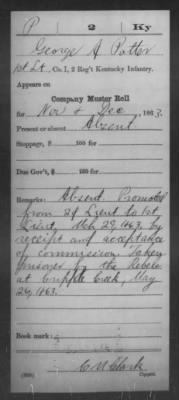 P | 2 | Ky
George A Potter
1st Lt., Co. I, 2 Reg't Kentucky Infantry.
Appears on
Company Muster Roll
for Nov & Dec, 1863.
Present or absent Absent
Stoppage, $ 100 for
Due Gov't, $ 100 for
Remarks: Absent. Promoted
from 2d Lieut to 1st
Lieut, Mch 29, 1863, by
receipt and acceptance
of commission. Taken
prisoner by the Rebels
at Cripple Creek, May
26, 1863.
Book mark:
C W Clark
(858) Copyist.